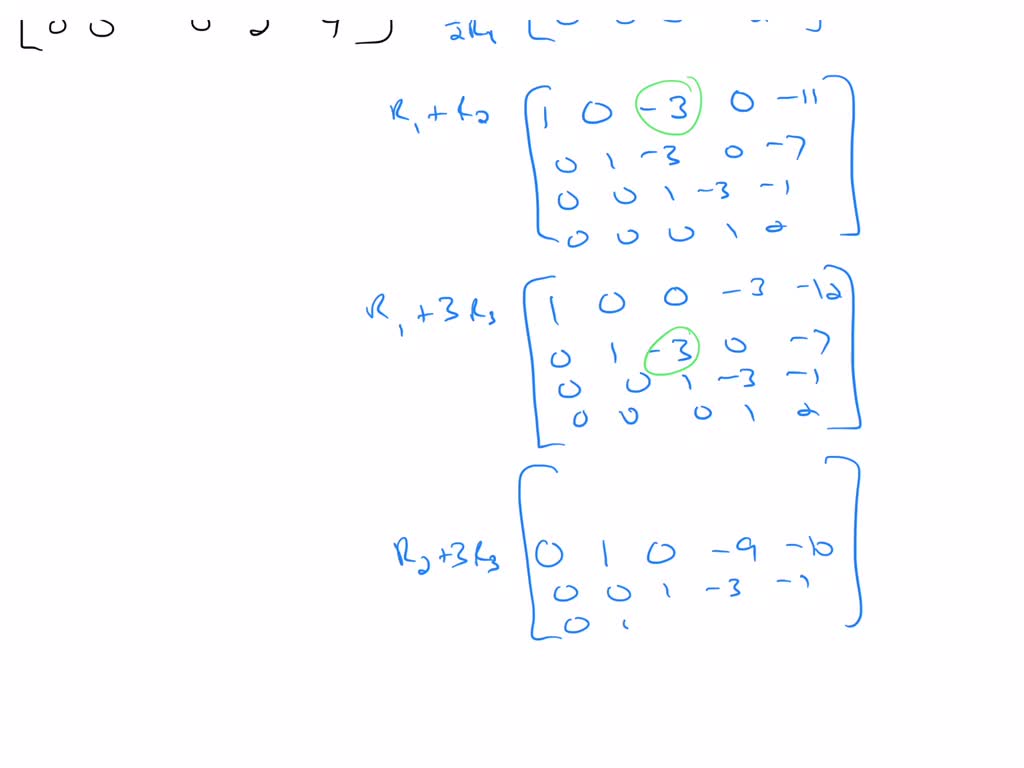 [ 0 0 0 2 4 ]
R₁ + R₂ [ 1 0 -3 0 -11
0 1 -3 0 -7
0 0 1 -3 -1
0 0 0 1 2 ]
R₁ + 3R₃ [ 1 0 0 -3 -12
0 1 -3 0 -7
0 0 1 -3 -1
0 0 0 1 2 ]
R₂ + 3R₃ [ 0 1 0 -9 -10
0 0 1 -3 -1
0 ]